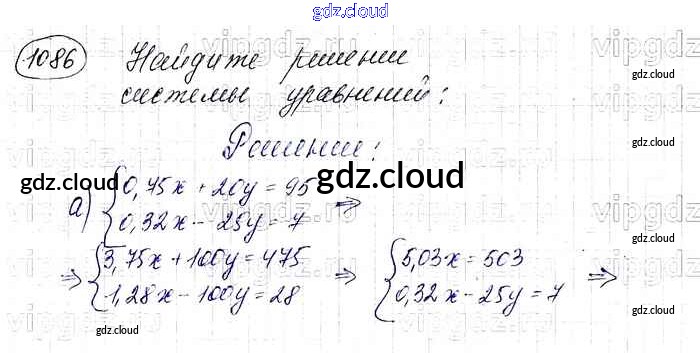 gdz.cloud
1086 Найдите решении
системы уравнений:
Решении:
а) {0,75x + 20y = 95
0,32x - 25y = 7 ⇒
⇒ {3,75x + 100y = 475
1,28x - 100y = 28 ⇒ {5,03x = 503
0,32x - 25y = 7 ⇒
gdz.cloud
gdz.cloud
gdz.cloud
gdz.cloud
gdz.cloud
gdz.cloud